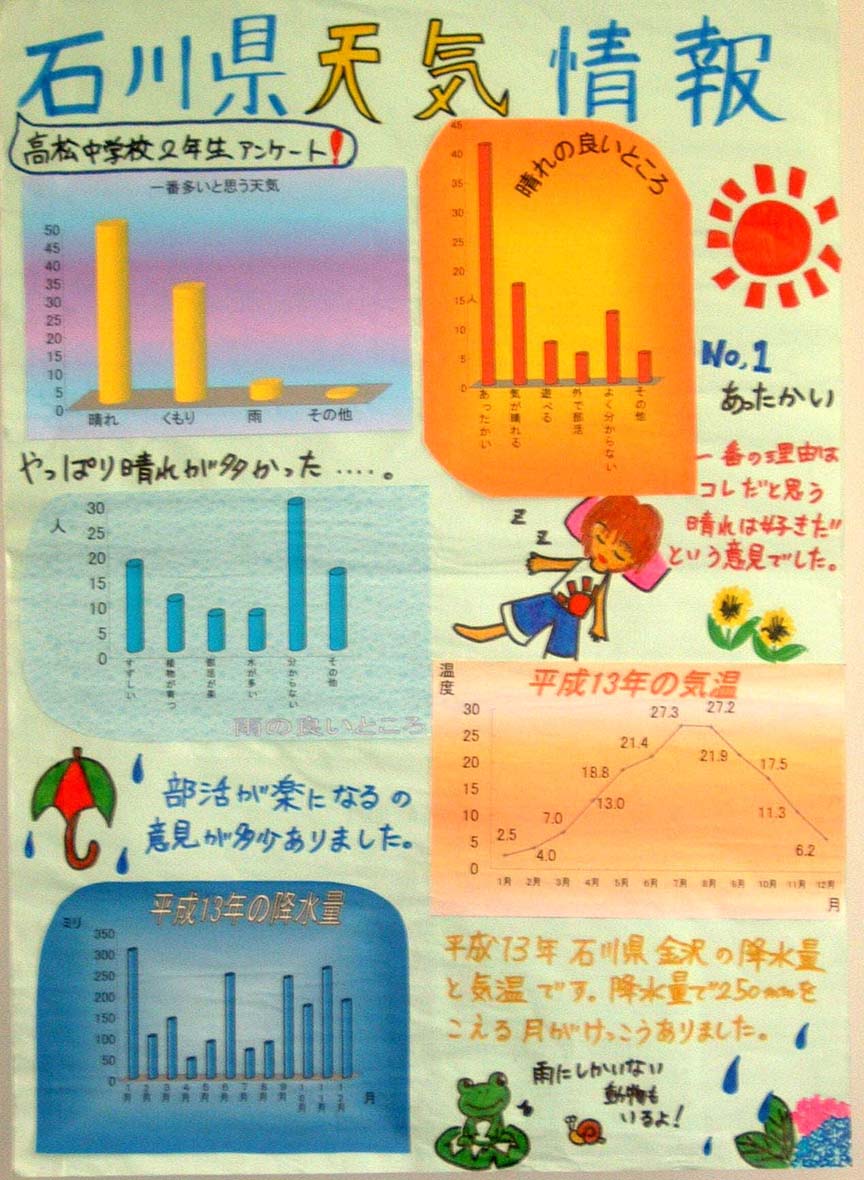 石川県天気情報
高松中学校2年生アンケート!
一番多いと思う天気
50
45
40
35
30
25
20
15
10
5
0
晴れ
くもり
雨
その他
やっぱり晴れが多かった ‥‥。
晴れの良いところ
45
40
35
30
25
20
15
人
10
5
0
あったかい
気が晴れる
遊べる
外で部活
よく分からない
その他
No,1
あったかい
一番の理由は
コレだと思う
晴れは好きだ!!
という意見でした。
z
z
人
30
25
20
15
10
5
0
すずしい
植物が育つ
部活が楽
水が多い
分からない
その他
雨の良いところ
部活が楽になるの
意見が多少ありました。
温度
平成13年の気温
30
25
20
15
10
5
0
2.5
4.0
7.0
13.0
18.8
21.4
27.3
27.2
21.9
17.5
11.3
6.2
1月
2月
3月
4月
5月
6月
7月
8月
9月
10月
11月
12月
月
平成13年の降水量
ミリ
350
300
250
200
150
100
50
0
1月
2月
3月
4月
5月
6月
7月
8月
9月
10月
11月
12月
月
平成13年 石川県 金沢の降水量
と気温です。降水量で250mmを
こえる月がけっこうありました。
雨にしかいない
動物も
いるよ!